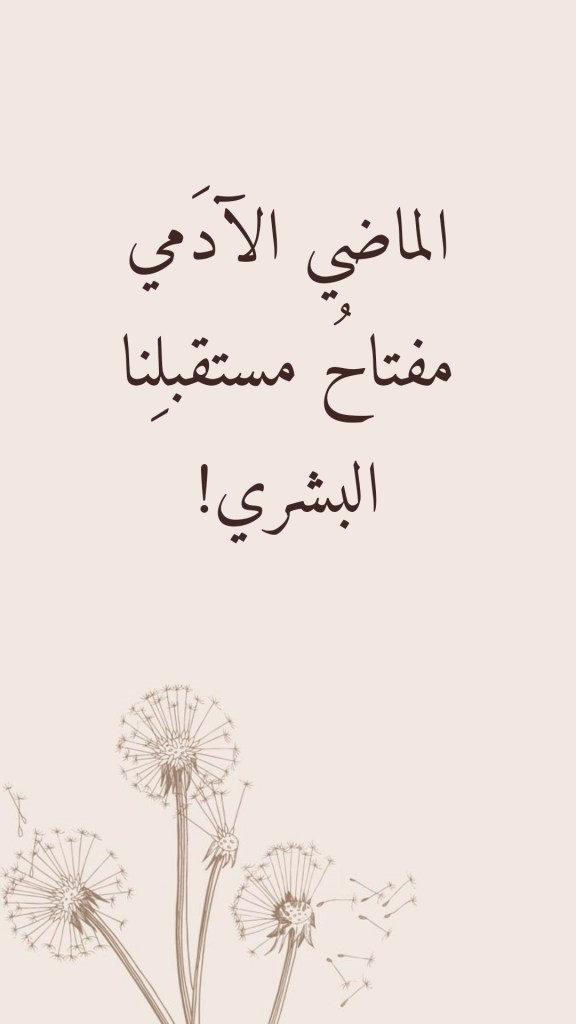 الماضي الآدَمي
مفتاحُ مستقبلِنا
البشري!